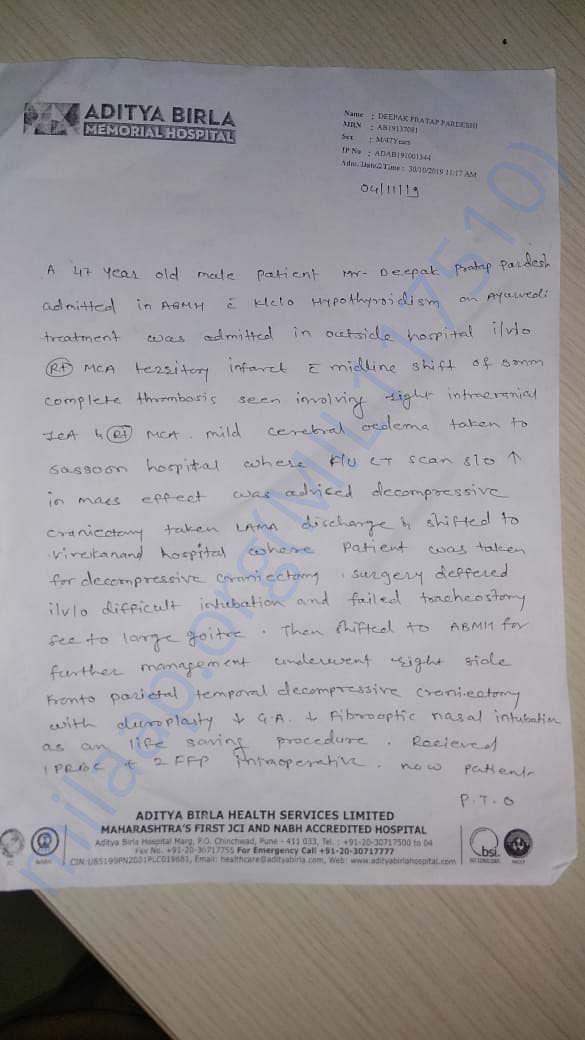 ADITYA BIRLA
MEMORIAL HOSPITAL
Name : DEEPAK PRATAP PARDESHI
MRN : AB19137081
Sex : M/47Years
IP No : ADAB191001344
Adm. Date&Time : 30/10/2019 11:17 AM
04/11/19
A 47 Year old male patient Mr. Deepak Pratap Pardesh
admitted in ABMH c̄ K/c/o Hypothyroidism on Ayurvedi
treatment was admitted in outside hospital i/v/o
Rt MCA territory infarct c̄ midline shift of mm
complete thrombosis seen involving right intracranial
ICA & Rt MCA. mild cerebral oedema taken to
Sassoon hospital where F/U CT scan s/o ↑
in mass effect was advised decompressive
craniectomy taken LAMA discharge & shifted to
Vivekanand hospital where patient was taken
for decompressive craniectomy. surgery deffered
i/v/o difficult intubation and failed tracheostomy
to large goitre. Then shifted to ABMH for
further management underwent right side
Fronto parietal temporal decompressive craniectomy
with duroplasty ↓ G.A. ↓ Fibrooptic nasal intubation
as an life saving procedure. Recieved
1 PRBC + 2 FFP intraoperative. now patient
P.T.O
milaap.org(MIL117510)
ADITYA BIRLA HEALTH SERVICES LIMITED
MAHARASHTRA'S FIRST JCI AND NABH ACCREDITED HOSPITAL
Aditya Birla Hospital Marg, P.O. Chinchwad, Pune - 411 033, Tel. : +91-20-30717500 to 04
Fax No. +91-20-30717755 For Emergency Call +91-20-30717777
CIN:U85199PN2001PLC019681, Email: healthcare@adityabirla.com, Web: www.adityabirlahospital.com
bsi.